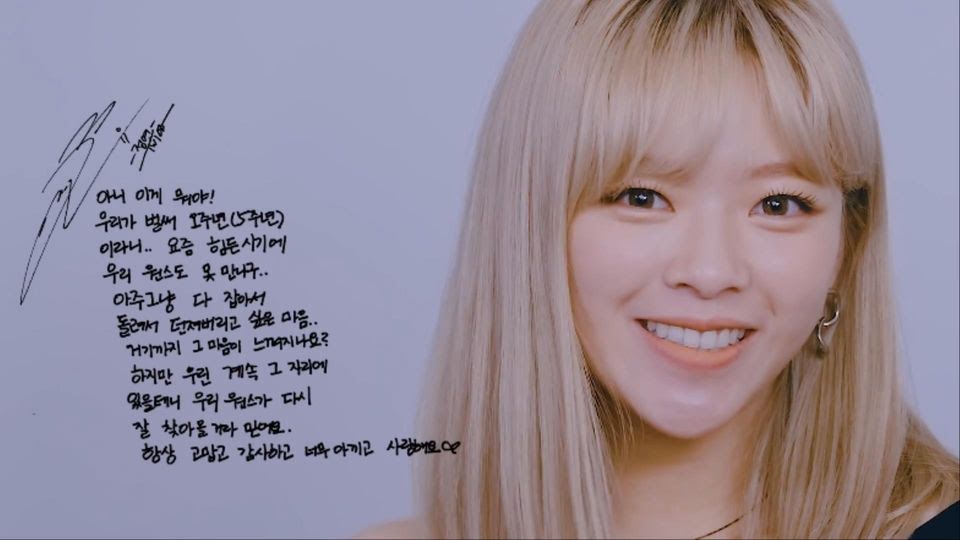 아니 이게 뭐야!
우리가 벌써 오주년(5주년)
이라니.. 요즘 힘든시기에
우리 원스도 못 만나구..
아주그냥 다 잡아서
돌려서 던져버리고 싶은 마음..
거기까지 그 마음이 느껴지나요?
하지만 우린 계속 그 자리에
있을테니 우리 원스가 다시
잘 찾아올거라 믿어요.
항상 고맙고 감사하고 너무 아끼고 사랑해요♡